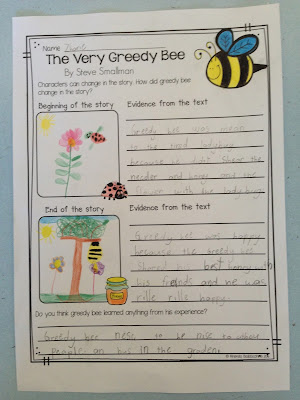 Name
The Very Greedy Bee
By Steve Smallman
Characters can change in the story. How did greedy bee
change in the story?
Beginning of the story
Evidence from the text
Greedy bee was mean
to the ladybug
because he didn't share the
and honey and the
flower with the ladybug
End of the story
Evidence from the text
Greedy bee was happy
because the greedy bee
shared best honey with
his friends and he was
rille rills happy.
Do you think greedy bee learned anything from his experience?
Greedy bee to be nice to
people an in the